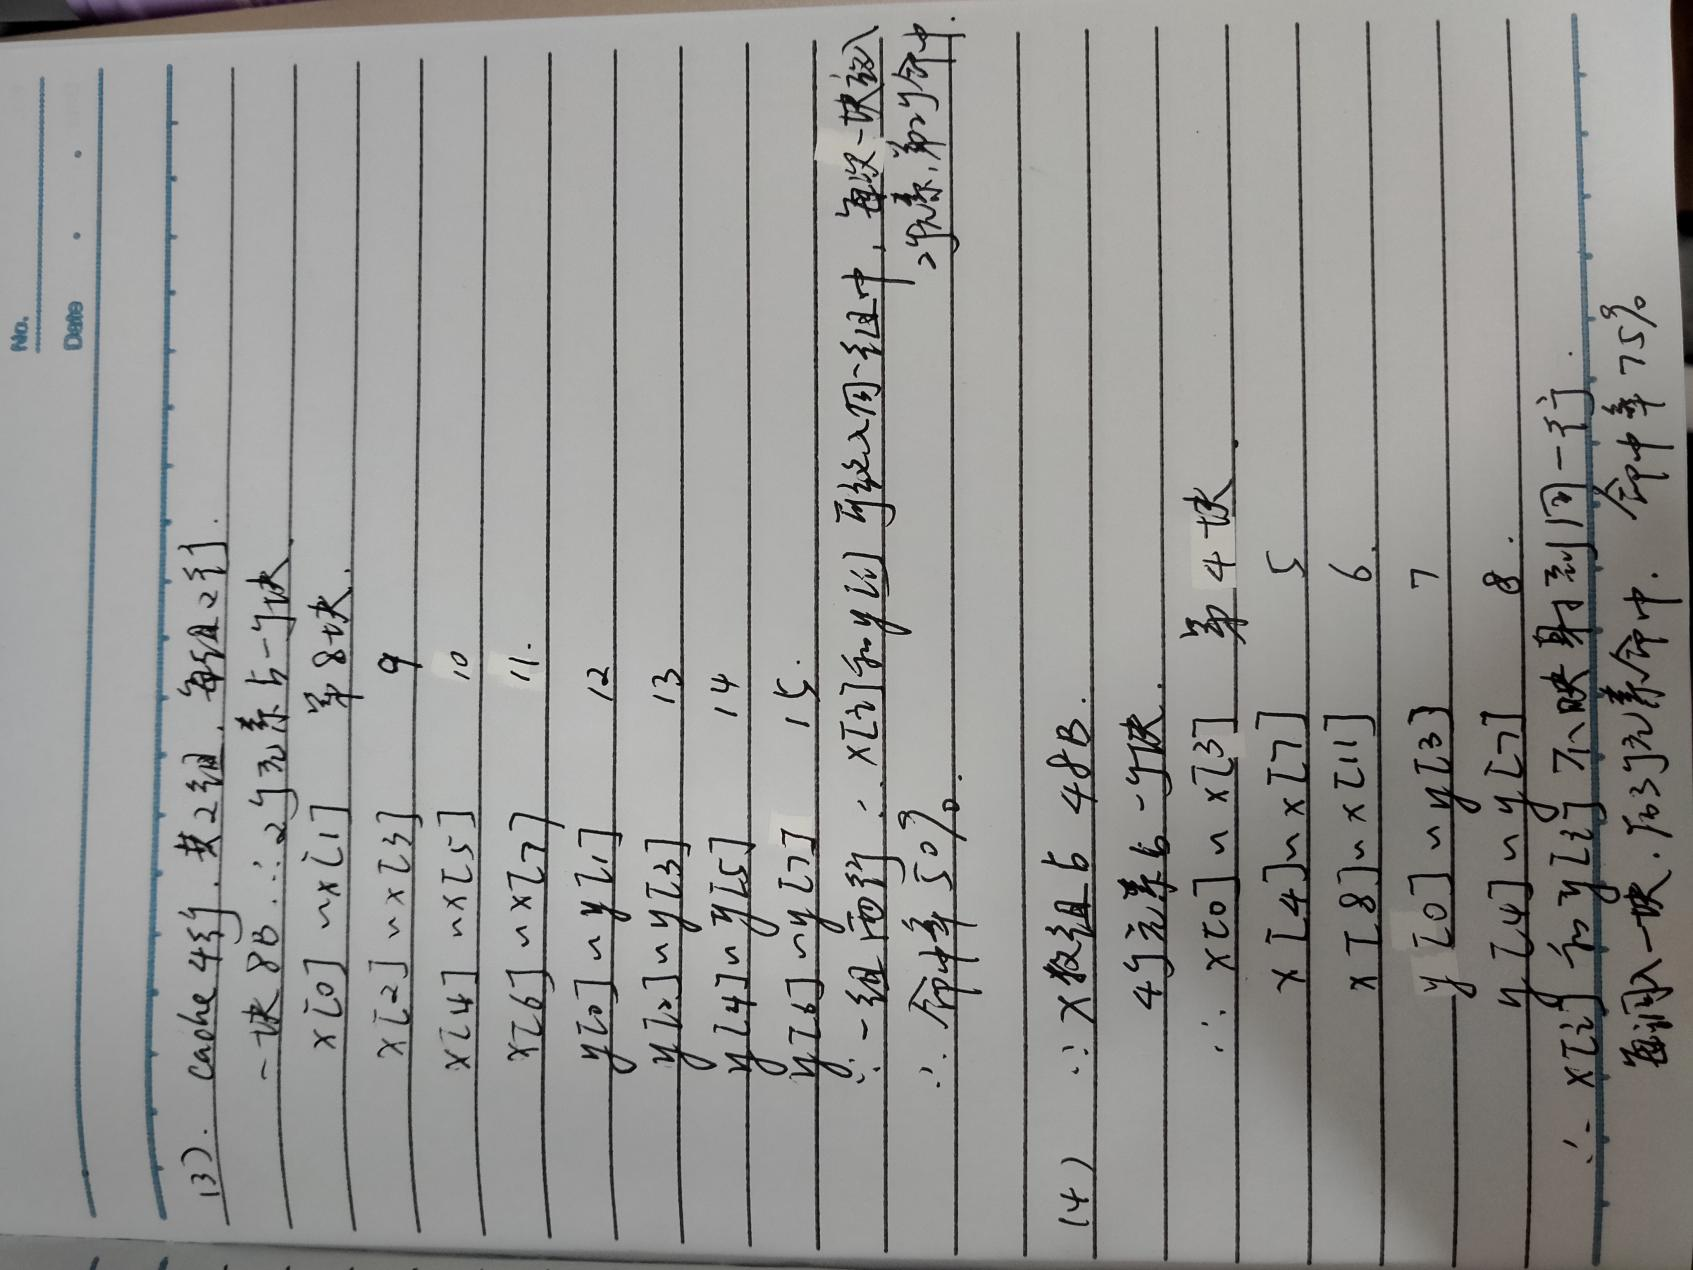 No.
Date
(3). cache 4行, 共2组, 每组2行.
一块 8B. ∴ 2个元素占一个块.
x[0] ~ x[1] 第 8 块.
x[2] ~ x[3] 9
x[4] ~ x[5] 10
x[6] ~ x[7] 11.
y[0] ~ y[1] 12
y[2] ~ y[3] 13
y[4] ~ y[5] 14
y[6] ~ y[7] 15.
∵ 一组两行 ∴ x[i]和y[i] 可放入同一组中, 每次一块放入
2个元素, 第2个命中.
∴ 命中率 50%.
(4) ∵ x数组占 48B.
4个元素占一个块.
∴ x[0] ~ x[3] 第 4 块.
x[4] ~ x[7] 5
x[8] ~ x[11] 6.
y[0] ~ y[3] 7
y[4] ~ y[7] 8.
∴ x[i] 和 y[i] 不映射到同一行.
每调入一块. 后3个元素命中. 命中率 75%